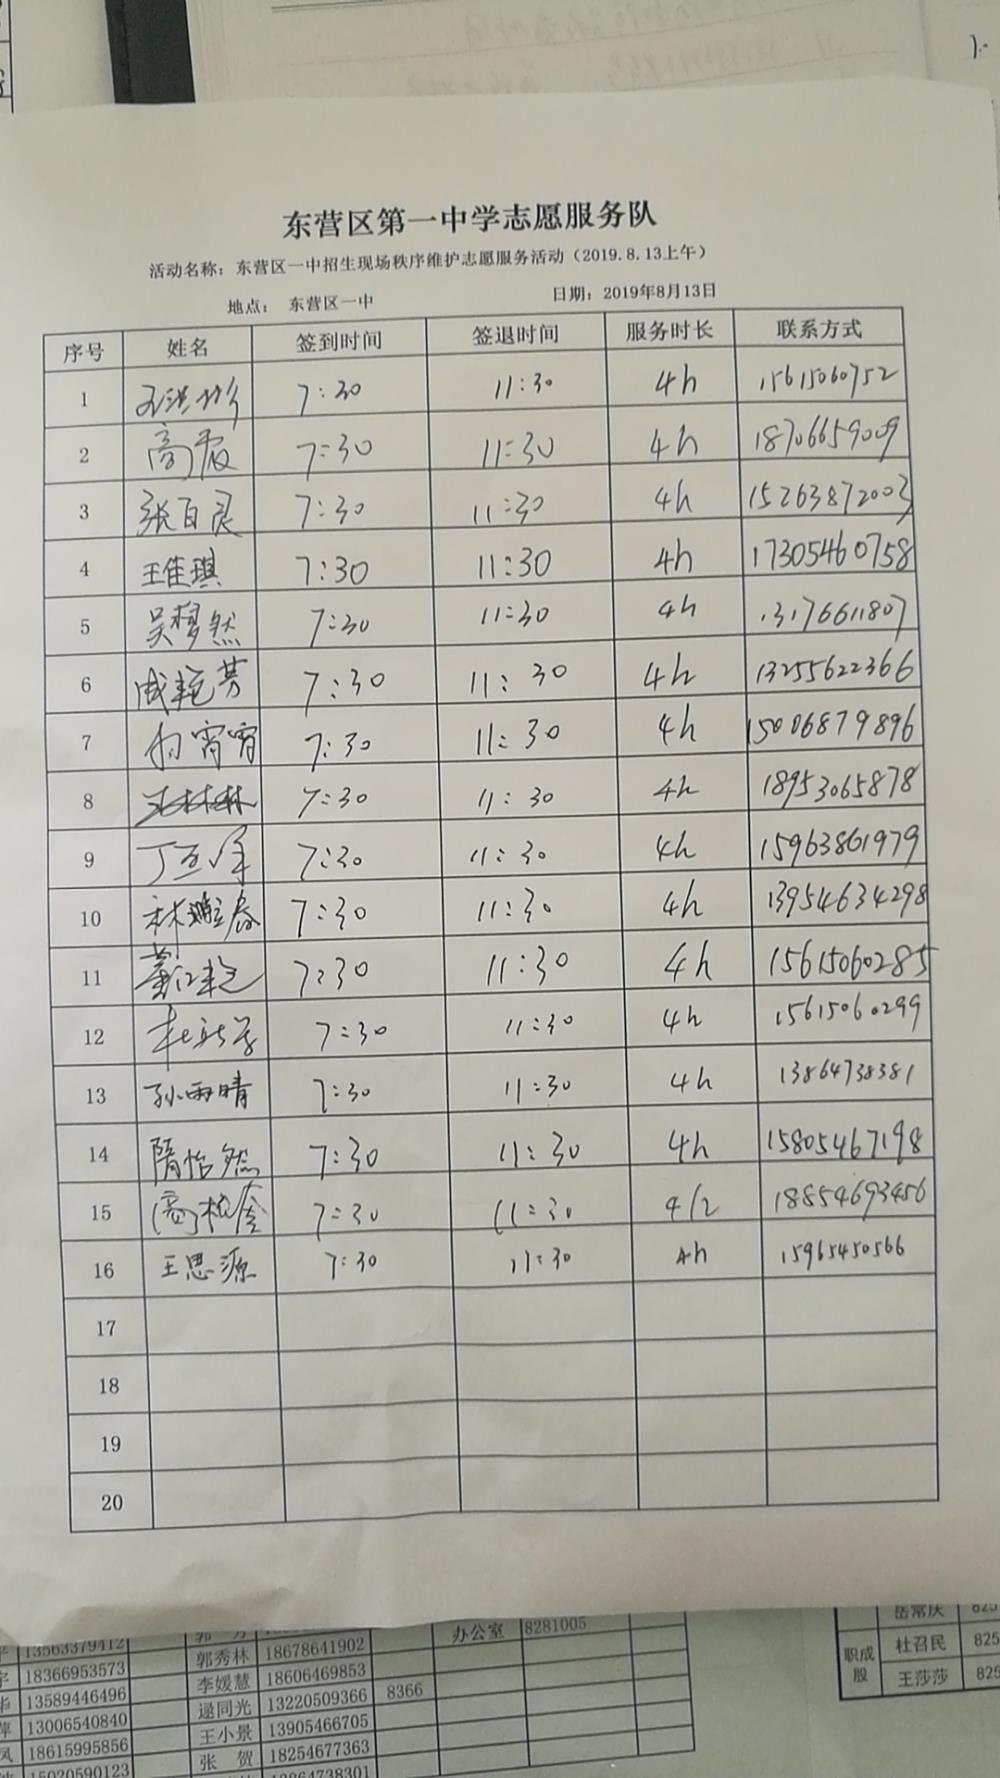 东营区第一中学志愿服务队
活动名称：东营区一中招生现场秩序维护志愿服务活动（2019.8.13上午）
地点： 东营区一中 日期：2019年8月13日
序号 姓名 签到时间 签退时间 服务时长 联系方式
1 7:30 11:30 4h 15615060752
2 高霞 7:30 11:30 4h 18706659009
3 张百灵 7:30 11:30 4h 15263872003
4 王佳琪 7:30 11:30 4h 17305460758
5 吴梦然 7:30 11:30 4h 13176611807
6 成艳芳 7:30 11:30 4h 13255622366
7 宵宵 7:30 11:30 4h 15006879896
8 7:30 11:30 4h 18953065878
9 丁 7:30 11:30 4h 15963861979
10 林 春 7:30 11:30 4h 13954634298
11 董江艳 7:30 11:30 4h 15615060285
12 杜 7:30 11:30 4h 15615060299
13 孙雨晴 7:30 11:30 4h 13864738381
14 隋怡然 7:30 11:30 4h 15805467198
15 高 7:30 11:30 4h 18854693456
16 王思源 7:30 11:30 4h 15965450566
17
18
19
20
13563379412 郭 办公室 8281005 岳常庆 825
18366953573 郭秀林 18678641902 职成股 杜召民 825
13589446496 李媛慧 18606469853 王莎莎 825
13006540840 逯同光 13220509366 8366
凤 18615995856 王小景 13905466705
15020590123 张 贺 18254677363
13864738301